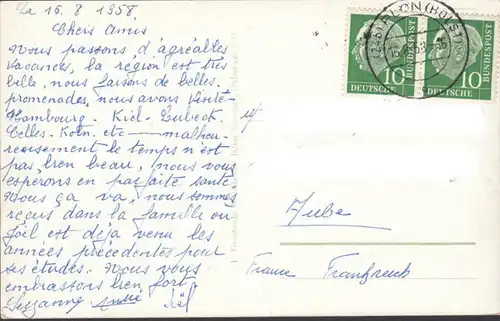 Le 16.8.1958.
Chers Amis
Nous passons d'agréables
vacances, la région est très
belle, nous faisons de belles
promenades, nous avons visité
Hambourg. Kiel. Lubeck.
Celles. Koln. etc — malheu-
reusement le temps n'est
pas bien beau, nous vous
espérons en parfaite santé
Nous ça va, nous sommes
reçus dans la famille ou
Joël est déjà venu les
années précédentes pour
ses études. Nous vous
embrassons bien fort
Suzanne André Joël
DEUTSCHE BUNDESPOST 10
DEUTSCHE BUNDESPOST 10
(HOLST)
Aube
France Frankreich